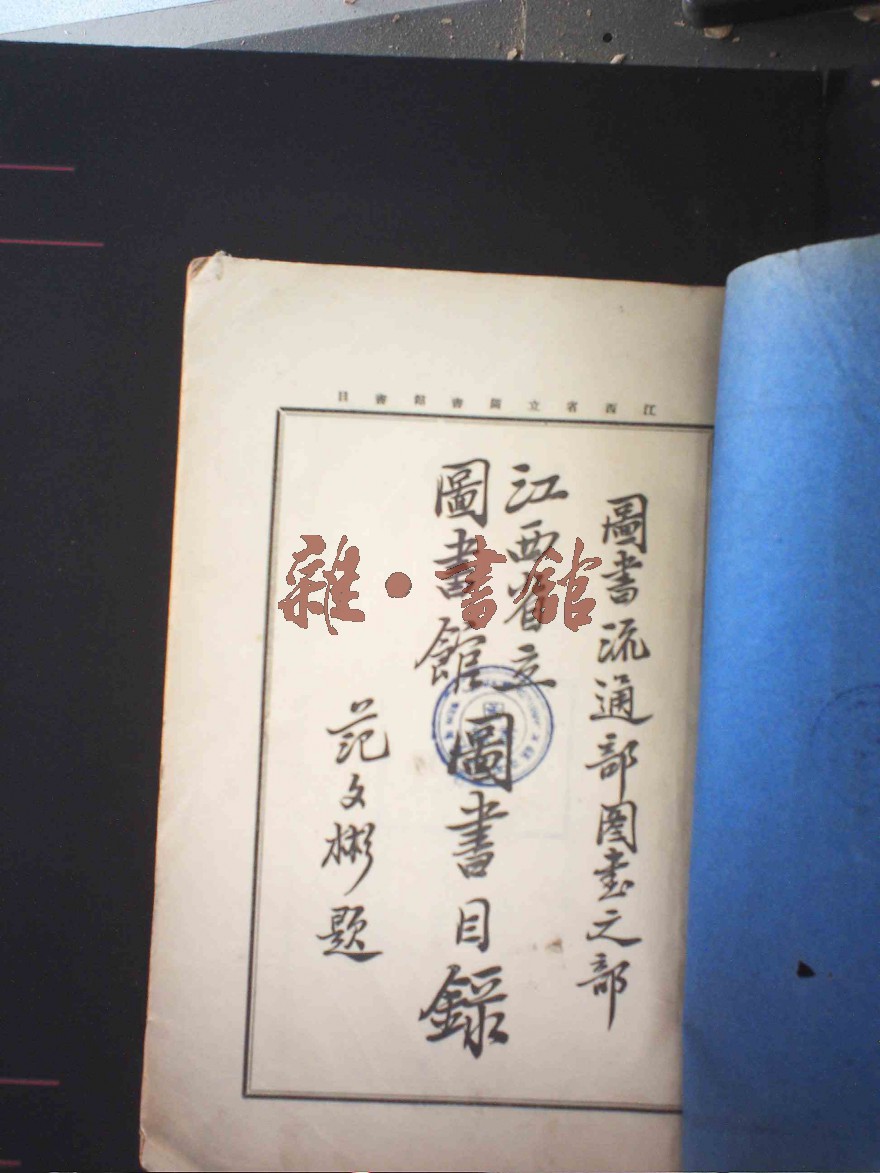 江西省立圖書館書目
圖書流通部圖書之部
江西省立
圖書館圖書目錄
范文彬題
雜·書館